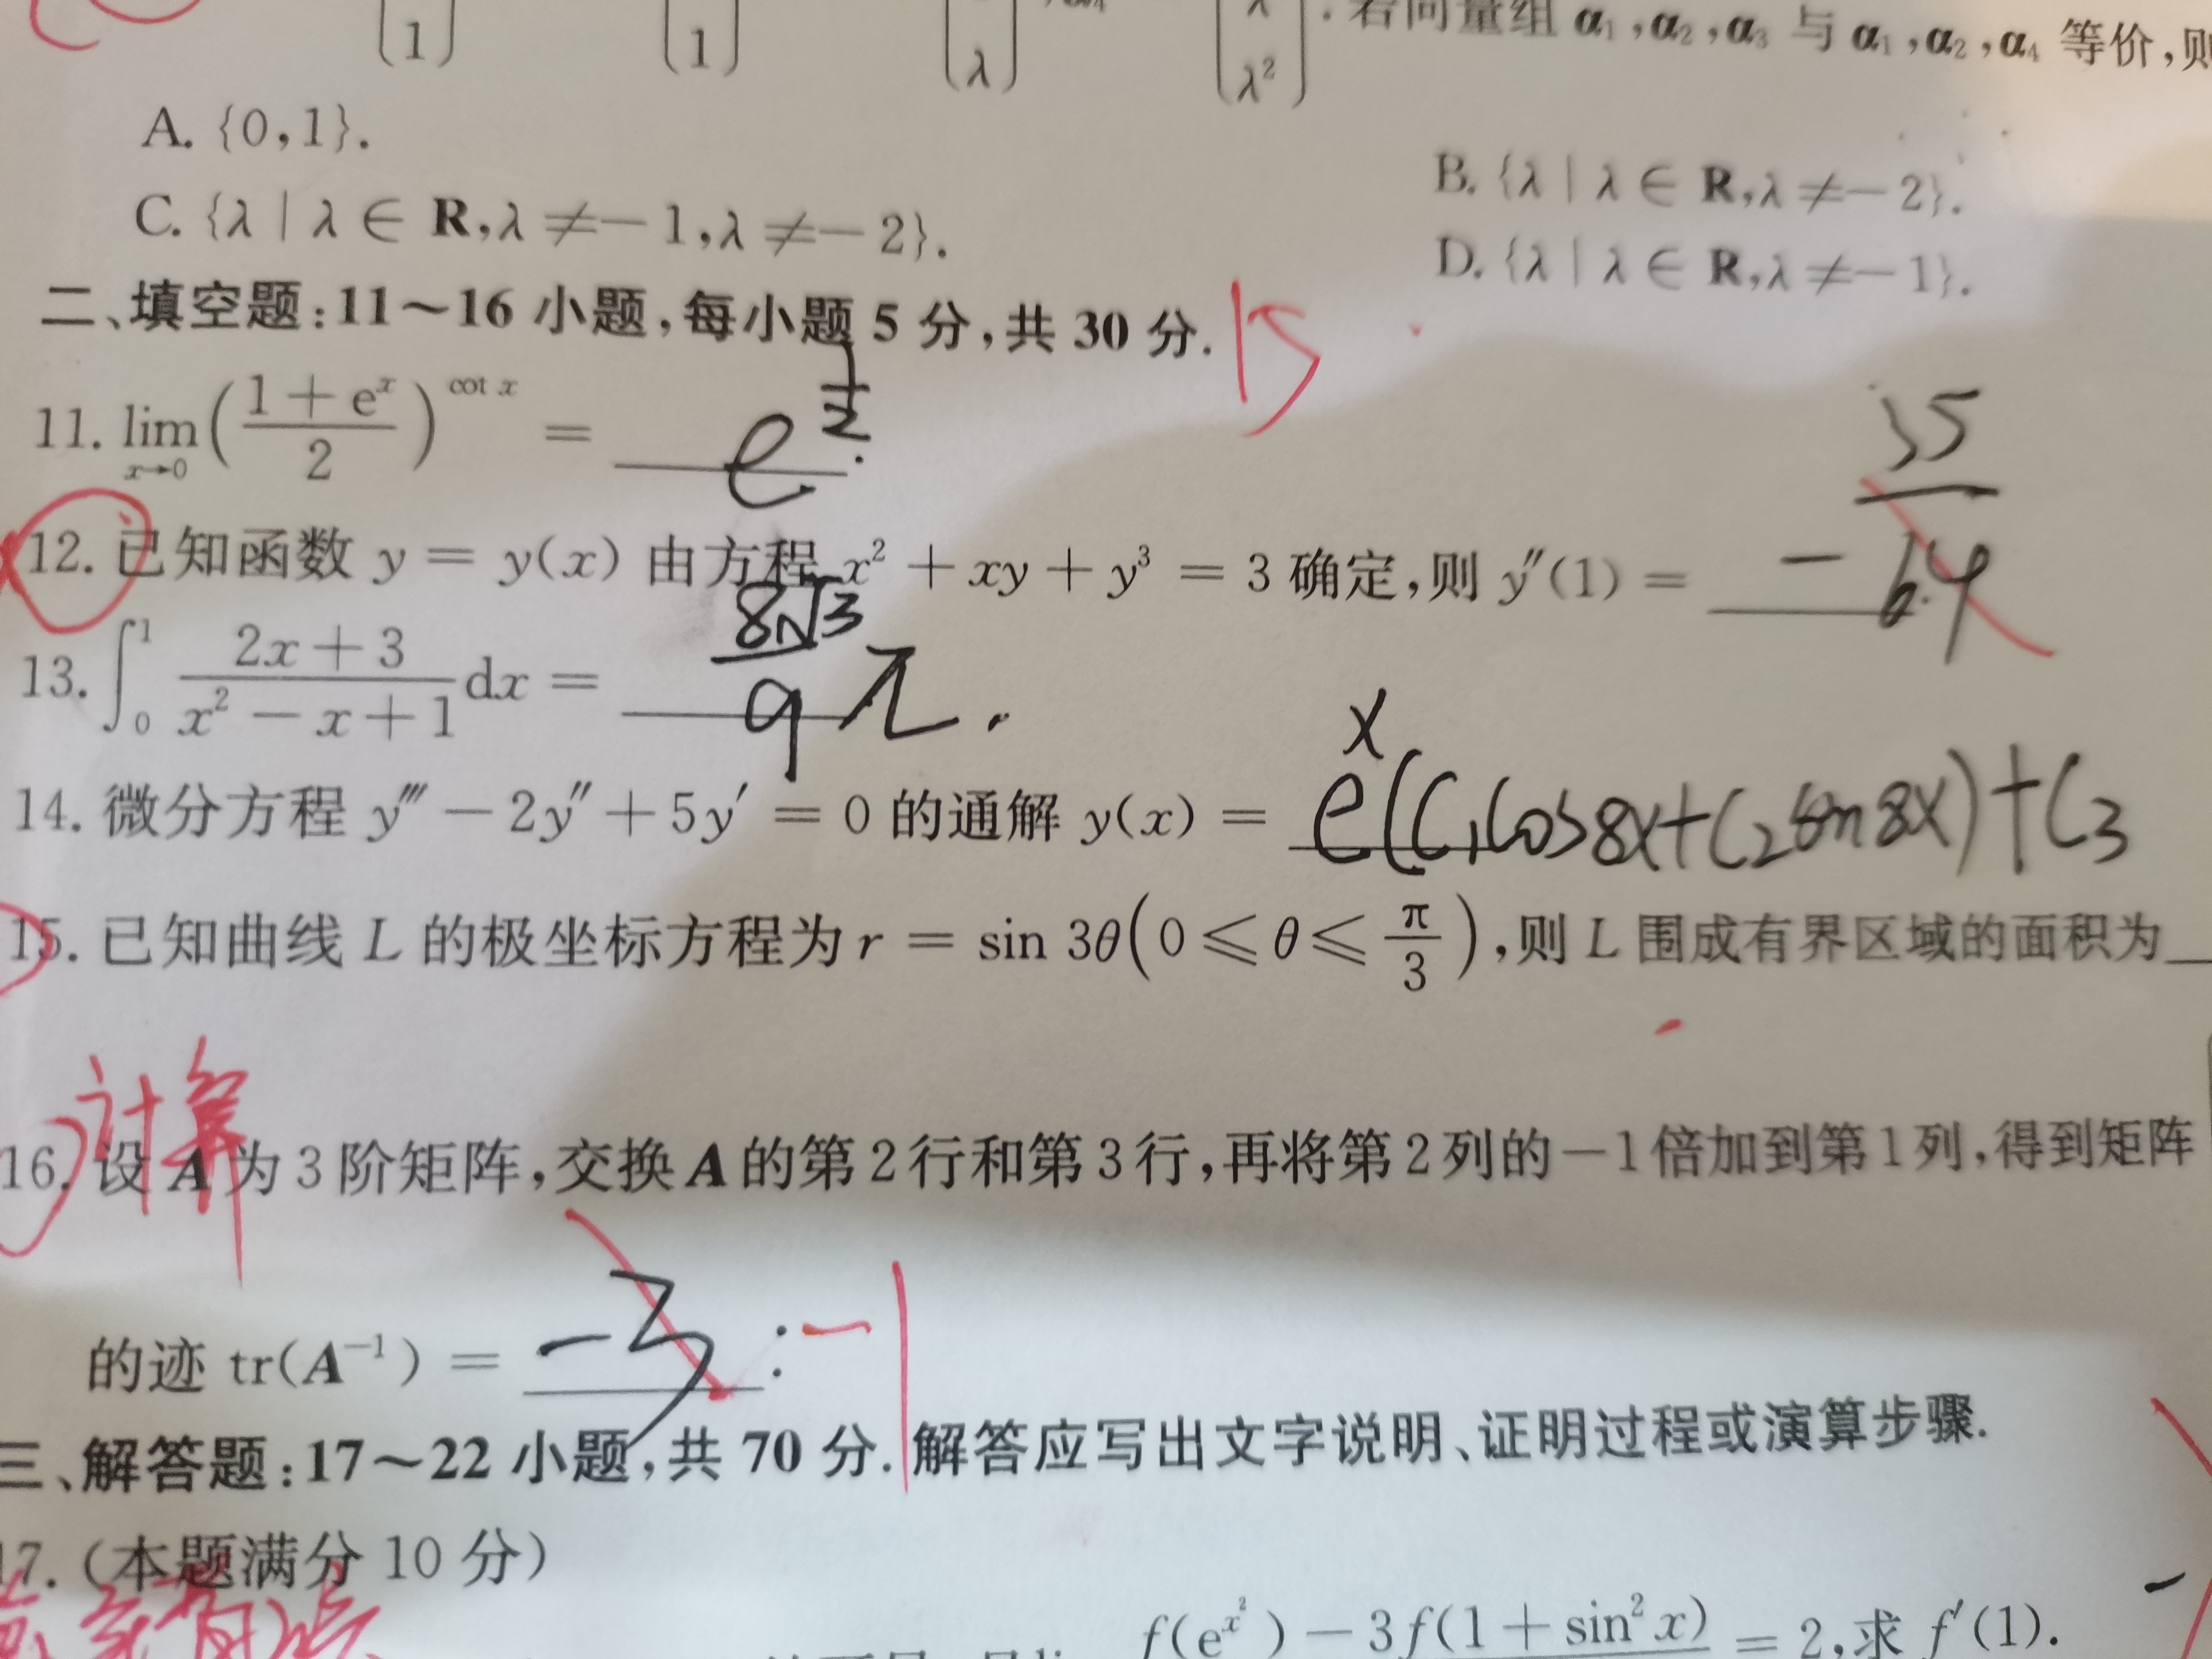 (1) (1) (λ) (λ²) . 若向量组 α₁,α₂,α₃ 与 α₁,α₂,α₄ 等价,则
A. {0,1}.
B. {λ | λ ∈ R,λ ≠ -2}.
C. {λ | λ ∈ R,λ ≠ -1,λ ≠ -2}.
D. {λ | λ ∈ R,λ ≠ -1}.
二、填空题:11~16 小题,每小题 5 分,共 30 分. 15
11. lim_{x→0} ((1+e^x)/2)^{cot x} = e^{1/2}.
12. 已知函数 y = y(x) 由方程 x² + xy + y³ = 3 确定,则 y″(1) = -35/64.
13. ∫₀¹ (2x+3)/(x²-x+1) dx = 8√3/9 π.
14. 微分方程 y‴ - 2y″ + 5y′ = 0 的通解 y(x) = e^x(C₁cos8x+C₂sin8x)+C₃
15. 已知曲线 L 的极坐标方程为 r = sin 3θ(0 ≤ θ ≤ π/3),则 L 围成有界区域的面积为
计算
16. 设 A 为 3 阶矩阵,交换 A 的第 2 行和第 3 行,再将第 2 列的 -1 倍加到第 1 列,得到矩阵
的迹 tr(A⁻¹) = -3. -1
三、解答题:17~22 小题,共 70 分. 解答应写出文字说明、证明过程或演算步骤.
17. (本题满分 10 分)
f(e^{x²}) - 3f(1 + sin² x) = 2,求 f′(1).